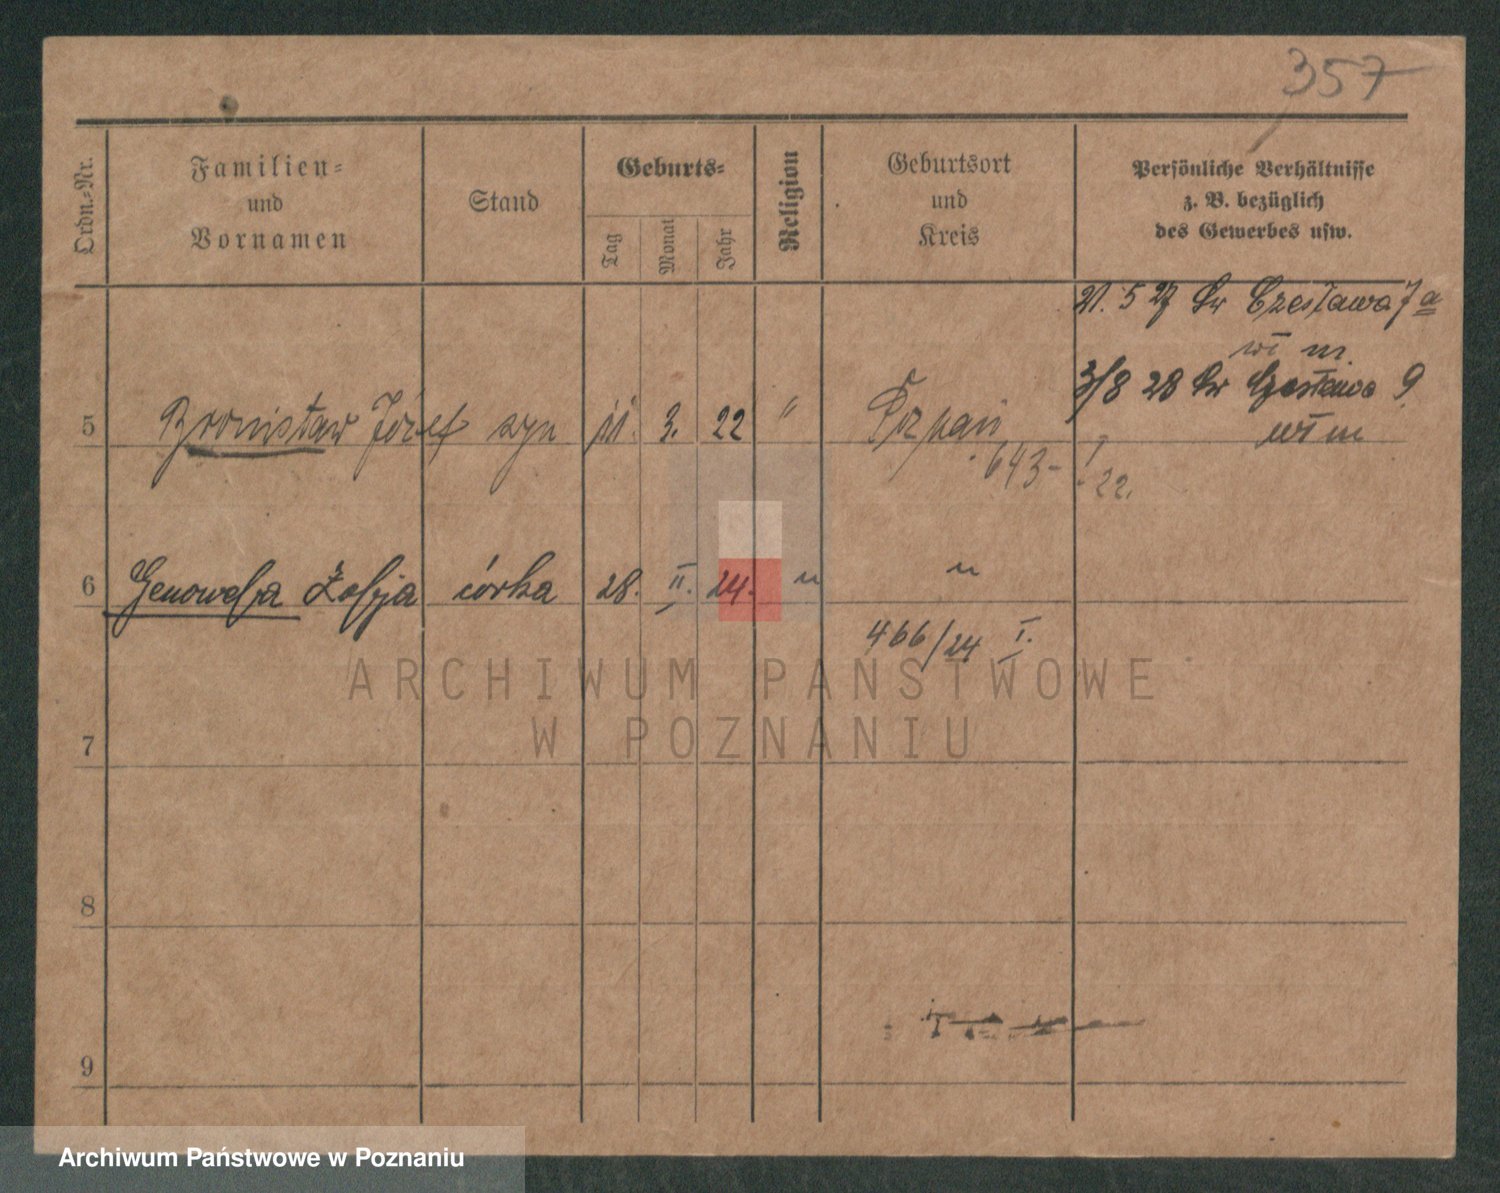 357
Ordn.-Nr.
Familien-
und
Vornamen
Stand
Geburts-
Tag
Monat
Jahr
Religion
Geburtsort
und
Kreis
Persönliche Verhältnisse
z. B. bezüglich
des Gewerbes usw.
21. 5 27 Św Czesława 7 a
wł m.
3/8 28 Św Czesława 9
wł m
5 Bronisław Józef syn 11. 3. 22 " Poznań
643- I 22.
6 Genowefa Zofja córka 28. II. 24. " "
466/24 I.
7
8
9
ARCHIWUM PAŃSTWOWE
W POZNANIU
Archiwum Państwowe w Poznaniu